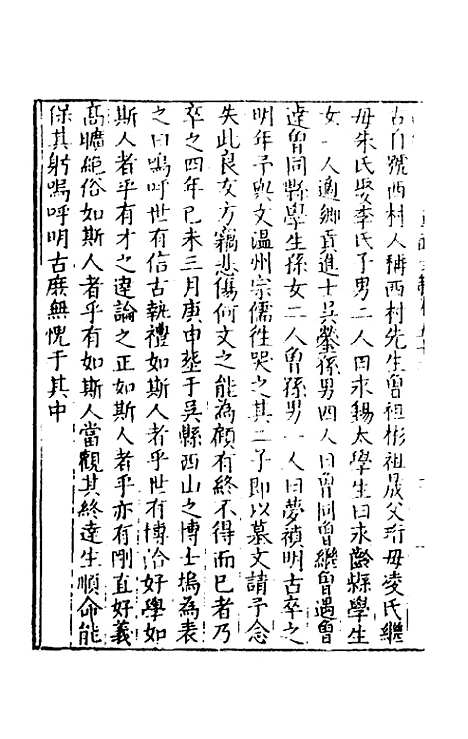 古自號西村人稱西村先生曾祖彬祖晟父珩母凌氏繼
母朱氏娶李氏子男二人曰永錫太學生曰永齡縣學生
女一人適鄉貢進士吳鏊孫男四人曰曾同曾繼曾遇曾
達曾同縣學生孫女二人曾孫男一人曰夢禎明古卒之
明年予與文溫州宗儒徃哭之其二子即以墓文請予念
失此良友方竊悲傷何文之能為顧有終不得而已者乃
卒之四年己未三月庚申塟于吳縣西山之博士塢為表
之曰嗚呼世有信古執禮如斯人者乎世有博洽好學如
斯人者乎有才之達論之正如斯人者乎亦有剛直好義
高曠絕俗如斯人者乎有如斯人當觀其終達生順命能
保其躬嗚呼明古庶無愧于其中